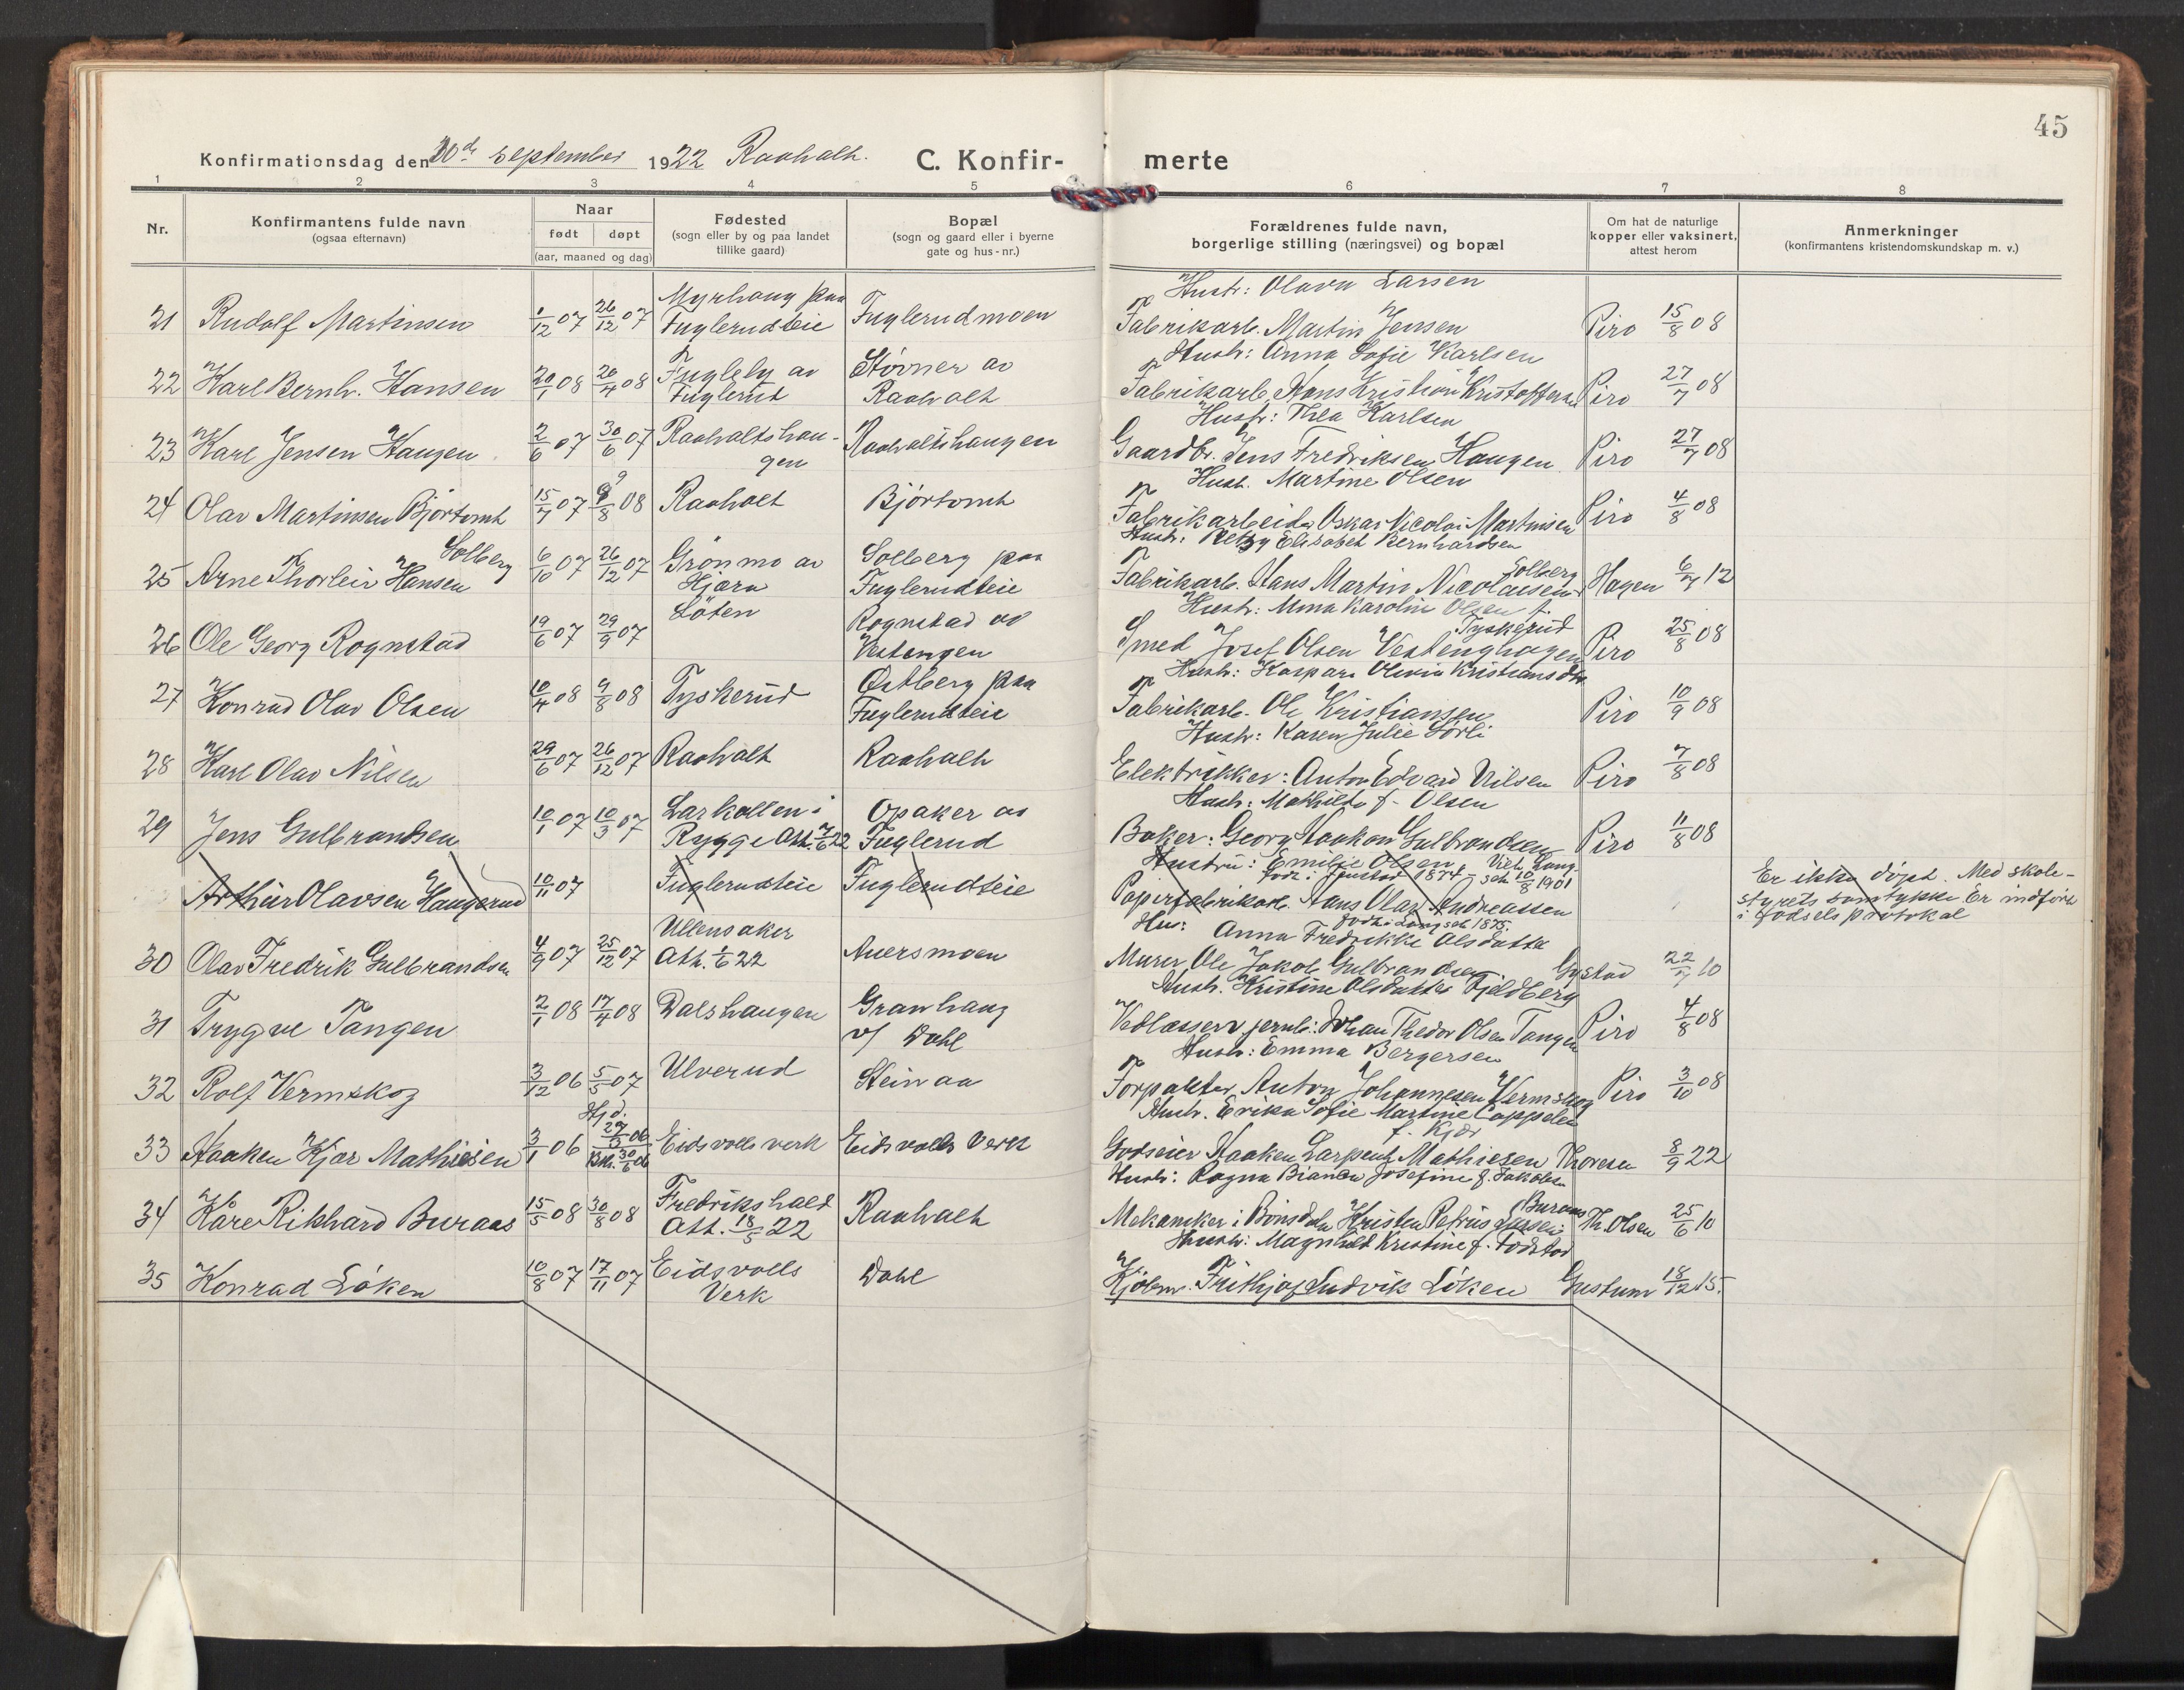 45
Konfirmationsdag den 10de september 1922 Raaholt.
C. Konfirmerte
1 2 3 4 5 6 7 8
Nr.
Konfirmantens fulde navn
(ogsaa efternavn)
Naar
født døpt
(aar, maaned og dag)
Fødested
(sogn eller by og paa landet
tillike gaard)
Bopæl
(sogn og gaard eller i byerne
gate og hus-nr.)
Forældrenes fulde navn,
borgerlige stilling (næringsvei) og bopæl
Om hat de naturlige
kopper eller vaksinert,
attest herom
Anmerkninger
(konfirmantens kristendomskundskap m. v.)
Hustr: Olava Larsen
21 Rudolf Martinsen 1/12 07 26/12 07 Myrhaug paa Fuglerudteie Fuglerudmoen Fabrikarb. Martin Jensen Piro 15/8 08
Hustr: Anna Sofie Karlsen
22 Karl Bernh. Hansen 20/1 08 20/4 08 Fugleby av Fuglerud Störner av Raaholt Fabrikarb. Hans Kristian Kristoffersen Piro 27/7 08
Hustr: Thea Karlsen
23 Karl Jensen Haugen 2/6 07 30/6 07 Raaholtshaugen Raaholtshaugen Gaardbr. Jens Fredriksen Haugen Piro 27/7 08
Hustr. Martine Olsen
24 Olav Martinsen Björtomt 15/7 07 9/8 08 Raaholt Björtomt Fabrikarbeider Oskar Nicolai Martinsen Piro 4/8 08
Hustr: Betzy Elisabet Bernhardsen
25 Arne Thorleiv Hansen Solberg 6/10 07 26/12 07 Grönmo av Hjera Solberg paa Fuglerudteie Fabrikarb. Hans Martin Nicolaisen Solberg Hagen 6/7 12
Hustr: Mina Karoline Olsen f. Tyskerud
26 Ole Georg Rognstad 19/6 07 29/9 07 Löten Rognstad av Vestengen Smed Josef Olsen Vestenghagen Piro 25/8 08
Hustr: Kaspara Olivia Kristiansdtr
27 Konrad Olav Olsen 10/4 08 9/8 08 Tyskerud Östberg paa Fuglerudteie Fabrikarb. Ole Kristiansen Piro 10/9 08
Hustr: Karen Julie Sörli
28 Karl Olav Nilsen 29/6 07 26/12 07 Raaholt Raaholt Elektrikker: Anton Edvard Nilsen Piro 7/8 08
Hustr: Mathilde f. Olsen
29 Jens Gulbrandsen 10/1 07 10/3 07 Larkollen i Rygge Att. 7/6 22 Opaker av Fuglerud Baker: Georg Haakon Gulbrandsen Piro 11/8 08
Hustru: Emilie Olsen
född i 1874 10/8 1901
Arthur Olavsen Haugerud 10/11 07 Fuglerudteie Fuglerudteie Papirfabrikarb. Hans Olav Andreassen Er ikke döpt. Med skolestyrets samtykke Er indfört i födselsprotokol
född i 1875.
Hus: Anna Fredrikke Olsdatter
30 Olav Fredrik Gulbrandsen 4/9 07 25/12 07 Ullensaker Att. 1/6 22 Auersmoen Murer Ole Jakob Gulbrandsen Gystad 22/7 10
Hustr. Kristine Olsdatter Fjeldberg
31 Trygve Tangen 2/1 08 17/4 08 Dalshaugen Granhaug v/ Dahl Vedlesser v jernb: Johan Thedor Olsen Tangen Piro 4/8 08
Hustr: Emma Bergersen
32 Rolf Vermskog 3/12 06 5/5 07 Ulverud Steinaa Forpakter Anton Johannesen Vermskog Piro 3/10 08
Hustr. Erika Sofie Martine Cappelen f. Kjær
33 Haaken Kjær Mathiesen 3/1 06 Hjd. 29/3 06 Bkr. 30/6 06 Eidsvolls verk Eidsvolls Verk Godseier Haaken Larpent Mathiesen Thoresen 8/9 22
Hustr: Ragna Bianca Josefine f. Jakobsen
34 Kåre Rikhard Buraas 15/5 08 30/8 08 Fredrikshald Att. 18/5 22 Raaholt Mekaniker i Bönsdalen Kristen Petrius Larsen Buraas Th. Olsen 25/6 10
Hustr: Magnhild Kristine f. Födstad
35 Konrad Löken 10/8 07 17/11 07 Eidsvolls Verk Dahl Kjölem. Frithjof Ludvik Löken Gustum 18/12 15.